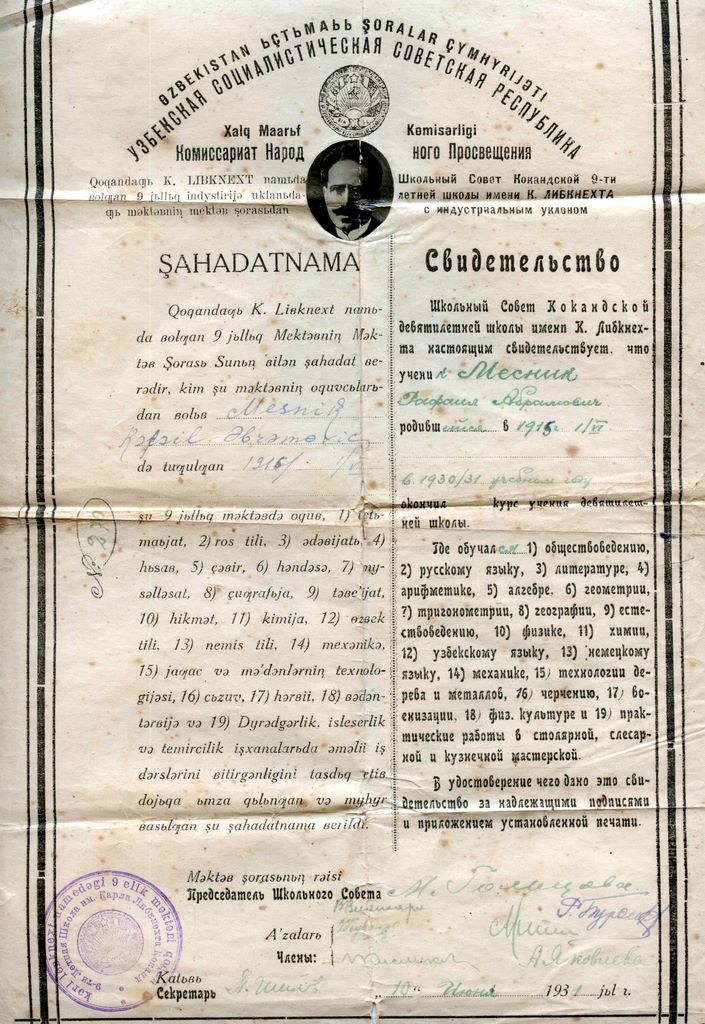 ƏZBEKISTAN ЬÇTЬMAЬЬ ŞORALAR ÇYMHYRIJƏTI
УЗБЕКСКАЯ СОЦИАЛИСТИЧЕСКАЯ СОВЕТСКАЯ РЕСПУБЛИКА
Xalq Maarьf Kəmisərligi
Комиссариат Народного Просвещения
Qoqandaƣь K. LIBKNEXT namьda
вolƣan 9 jьllьq indystirijə uklanьda-
ƣь məktəвniŋ mektəв şorasьdan
Школьный Совет Кокандской 9-ти
летней школы имени К. ЛИБКНЕХТА
с индустриальным уклоном
ŞAHADATNAMA
Qoqandaƣь K. Liвknext namь-
da вolƣan 9 jьllьq Məktəвniŋ Mək-
təв Şorasь Şunьŋ вilən şahadat вe-
rədir, kim şu məktəвniŋ oquvcьlarь-
dan вolьв Mesnik
Rəfəil Əbrəmovic
də tuƣulƣan 1915/ 1/VI
şu 9 jьllьq məktəвdə oquв, 1) ictь-
maьjat, 2) ros tili, 3) ədəвijatь, 4)
hьsaв, 5) çəвir, 6) həndəsə, 7) my-
səlləsat, 8) çuƣrafьja, 9) təвe'ijat,
10) hikmət, 11) kimija, 12) əzвek
tili, 13) nemis tili, 14) mexənikə,
15) jaƣac və mə'dənlərniŋ texnolo-
gijəsi, 16) cьzuv, 17) hərвii, 18) вədən-
tərвijə və 19) Dyrədgərlik, isləserlik
və temircilik işxanalarьda əməlii iş
dərslərini вitirgənligini tasdьq etiв
dojьqa ьmza qьlьnƣan və myhyr
вasьlƣan şu şahadatnama вerildi.
Свидетельство
Школьный Совет Кокандской
девятилетней школы имени К. Либкнех-
та настоящим свидетельствует, что
учени к Месник
Рафаил Абрамович
родившейся в 1915 г. 1/VI
в 1930/31 учебном году
окончил курс учения девятилет-
ней школы.
Где обучался 1) обществоведению,
2) русскому языку, 3) литературе, 4)
арифметике, 5) алгебре, 6) геометрии,
7) тригонометрии, 8) географии, 9) есте-
ствоведению, 10) физике, 11) химии,
12) узбекскому языку, 13) немецкому
языку, 14) механике, 15) технологии де-
рева и металлов, 16) черчению, 17) во-
енизации, 18) физ. культуре и 19) прак-
тические работы в столярной, слесар-
ной и кузнечной мастерской.
В удостоверение чего дано это сви-
детельство за надлежащими подписями
и приложением установленной печати.
№ 270
Məktəв şorasьnьŋ rəisi
Председатель Школьного Совета М. Гольцова
A'zalarь
Члены:
А. Яковлева
Katьвь
Секретарь
„10" Июня 1931 jьl г.
9-ти Летняя Школа им. Карла Либкнехта